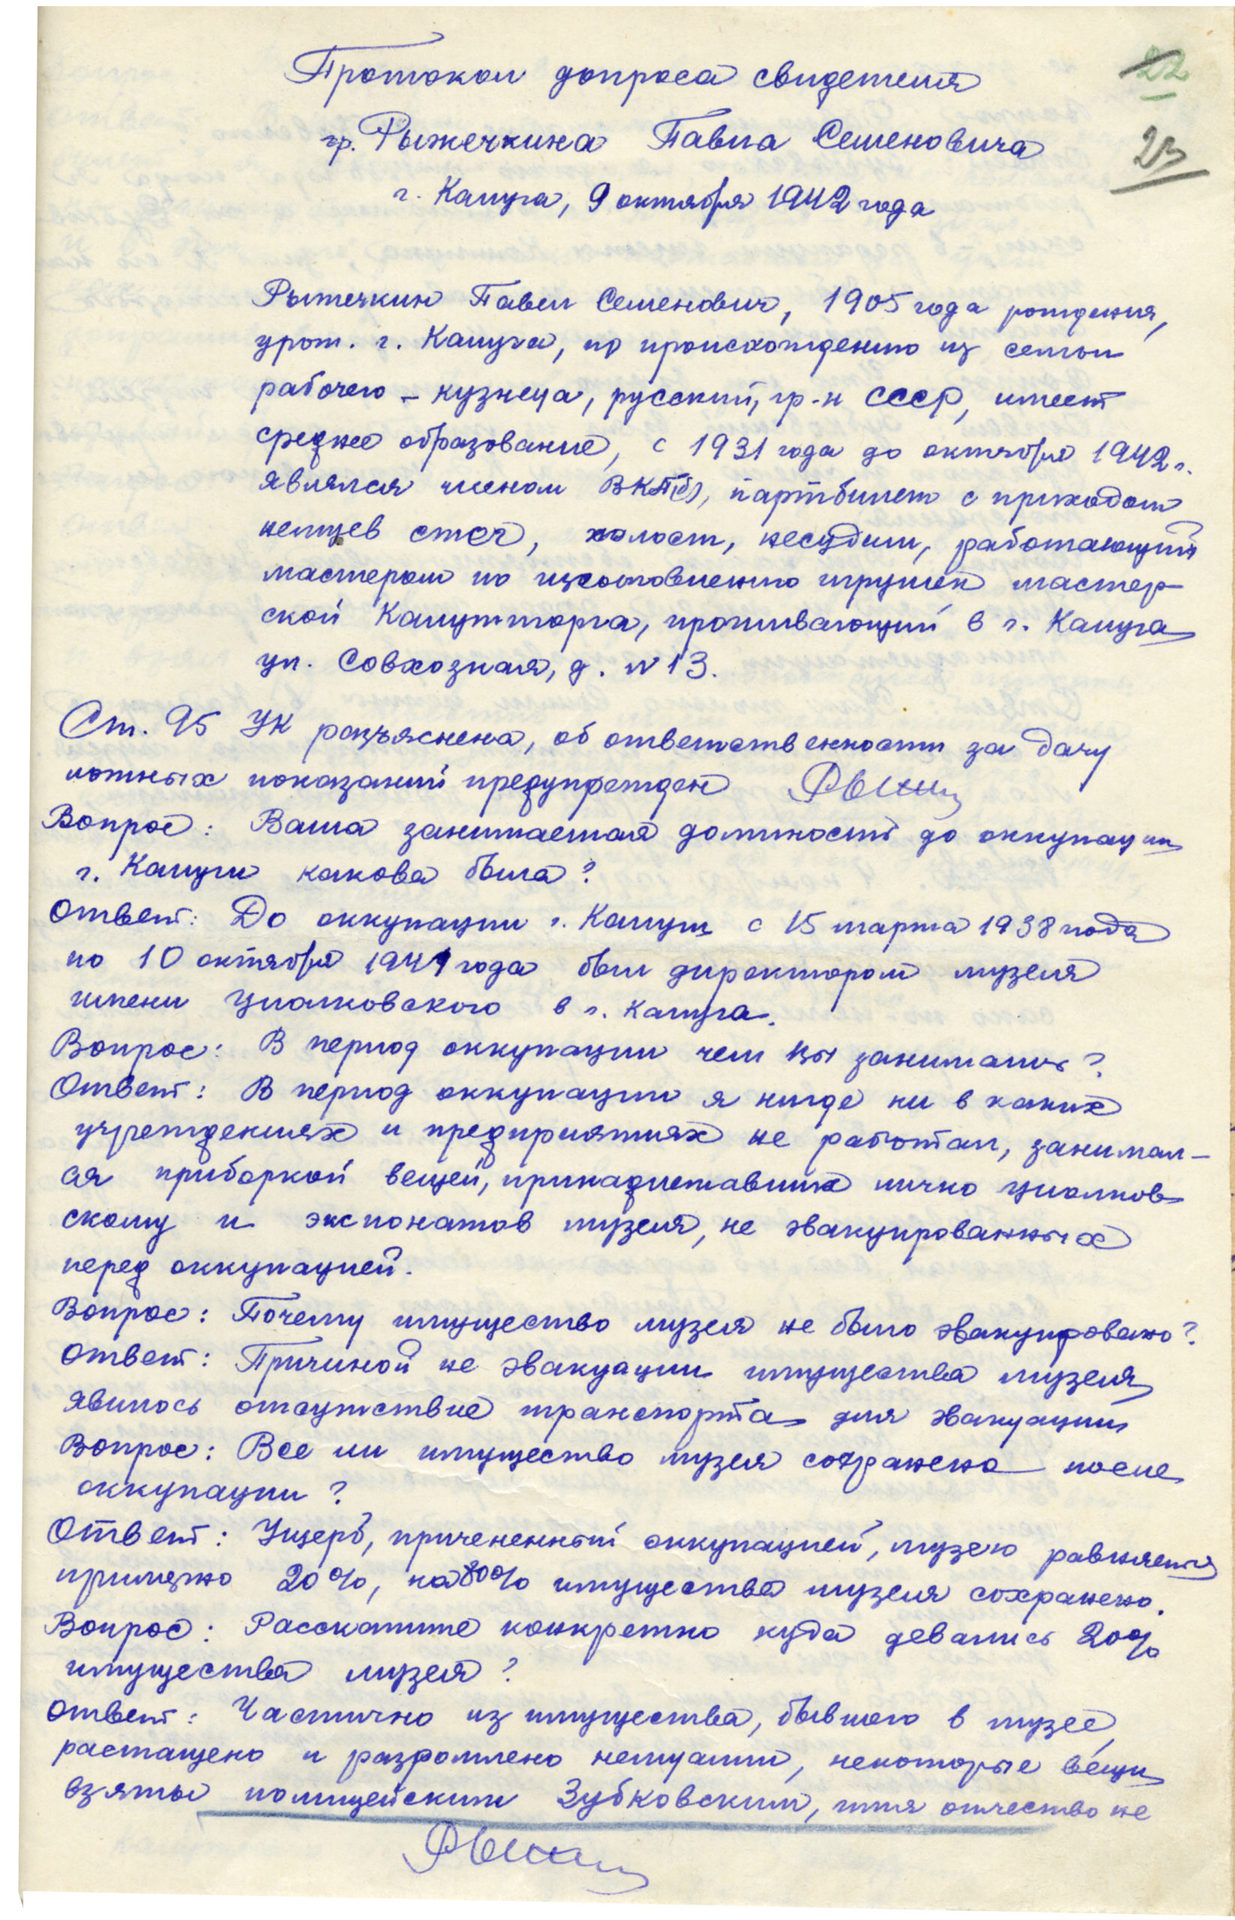 22
23
Протокол допроса свидетеля
гр. Рыжечкина Павла Семеновича
г. Калуга, 9 октября 1942 года
Рыжечкин Павел Семенович, 1905 года рождения,
урож. г. Калуга, по происхождению из семьи
рабочего – кузнеца, русский, гр-н СССР, имеет
среднее образование, с 1931 года до октября 1942 г.
являлся членом ВКП(б), партбилет с приходом
немцев сжег, холост, несудим, работающий
мастером по изготовлению игрушек мастер-
ской Калужторга, проживающий в г. Калуга
ул. Совхозная, д. № 13.
Ст. 95 УК разъяснена, об ответственности за дачу
ложных показаний предупрежден
Вопрос: Ваша занимаемая должность до оккупации
г. Калуги какова была?
Ответ: До оккупации г. Калуги с 15 марта 1938 года
по 10 октября 1941 года был директором музея
имени Циолковского в г. Калуга.
Вопрос: В период оккупации чем вы занимались?
Ответ: В период оккупации я нигде ни в каких
учреждениях и предприятиях не работал, занимал-
ся приборкой вещей, принадлежавших лично Циолков-
скому и экспонатов музея, не эвакуированных
перед оккупацией.
Вопрос: Почему имущество музея не было эвакуировано?
Ответ: Причиной не эвакуации имущества музея
явилось отсутствие транспорта для эвакуации
Вопрос: Все ли имущество музея сохранено после
оккупации?
Ответ: Ущерб, причененный оккупацией, музею равняется
примерно 20%, на 80% имущества музея сохранено.
Вопрос: Расскажите конкретно куда девались 20%
имущества музея?
Ответ: Частично из имущества, бывшего в музее,
растащено и разгромлено немцами, некоторые вещи
взяты полицейским Зубковским, имя отчество не